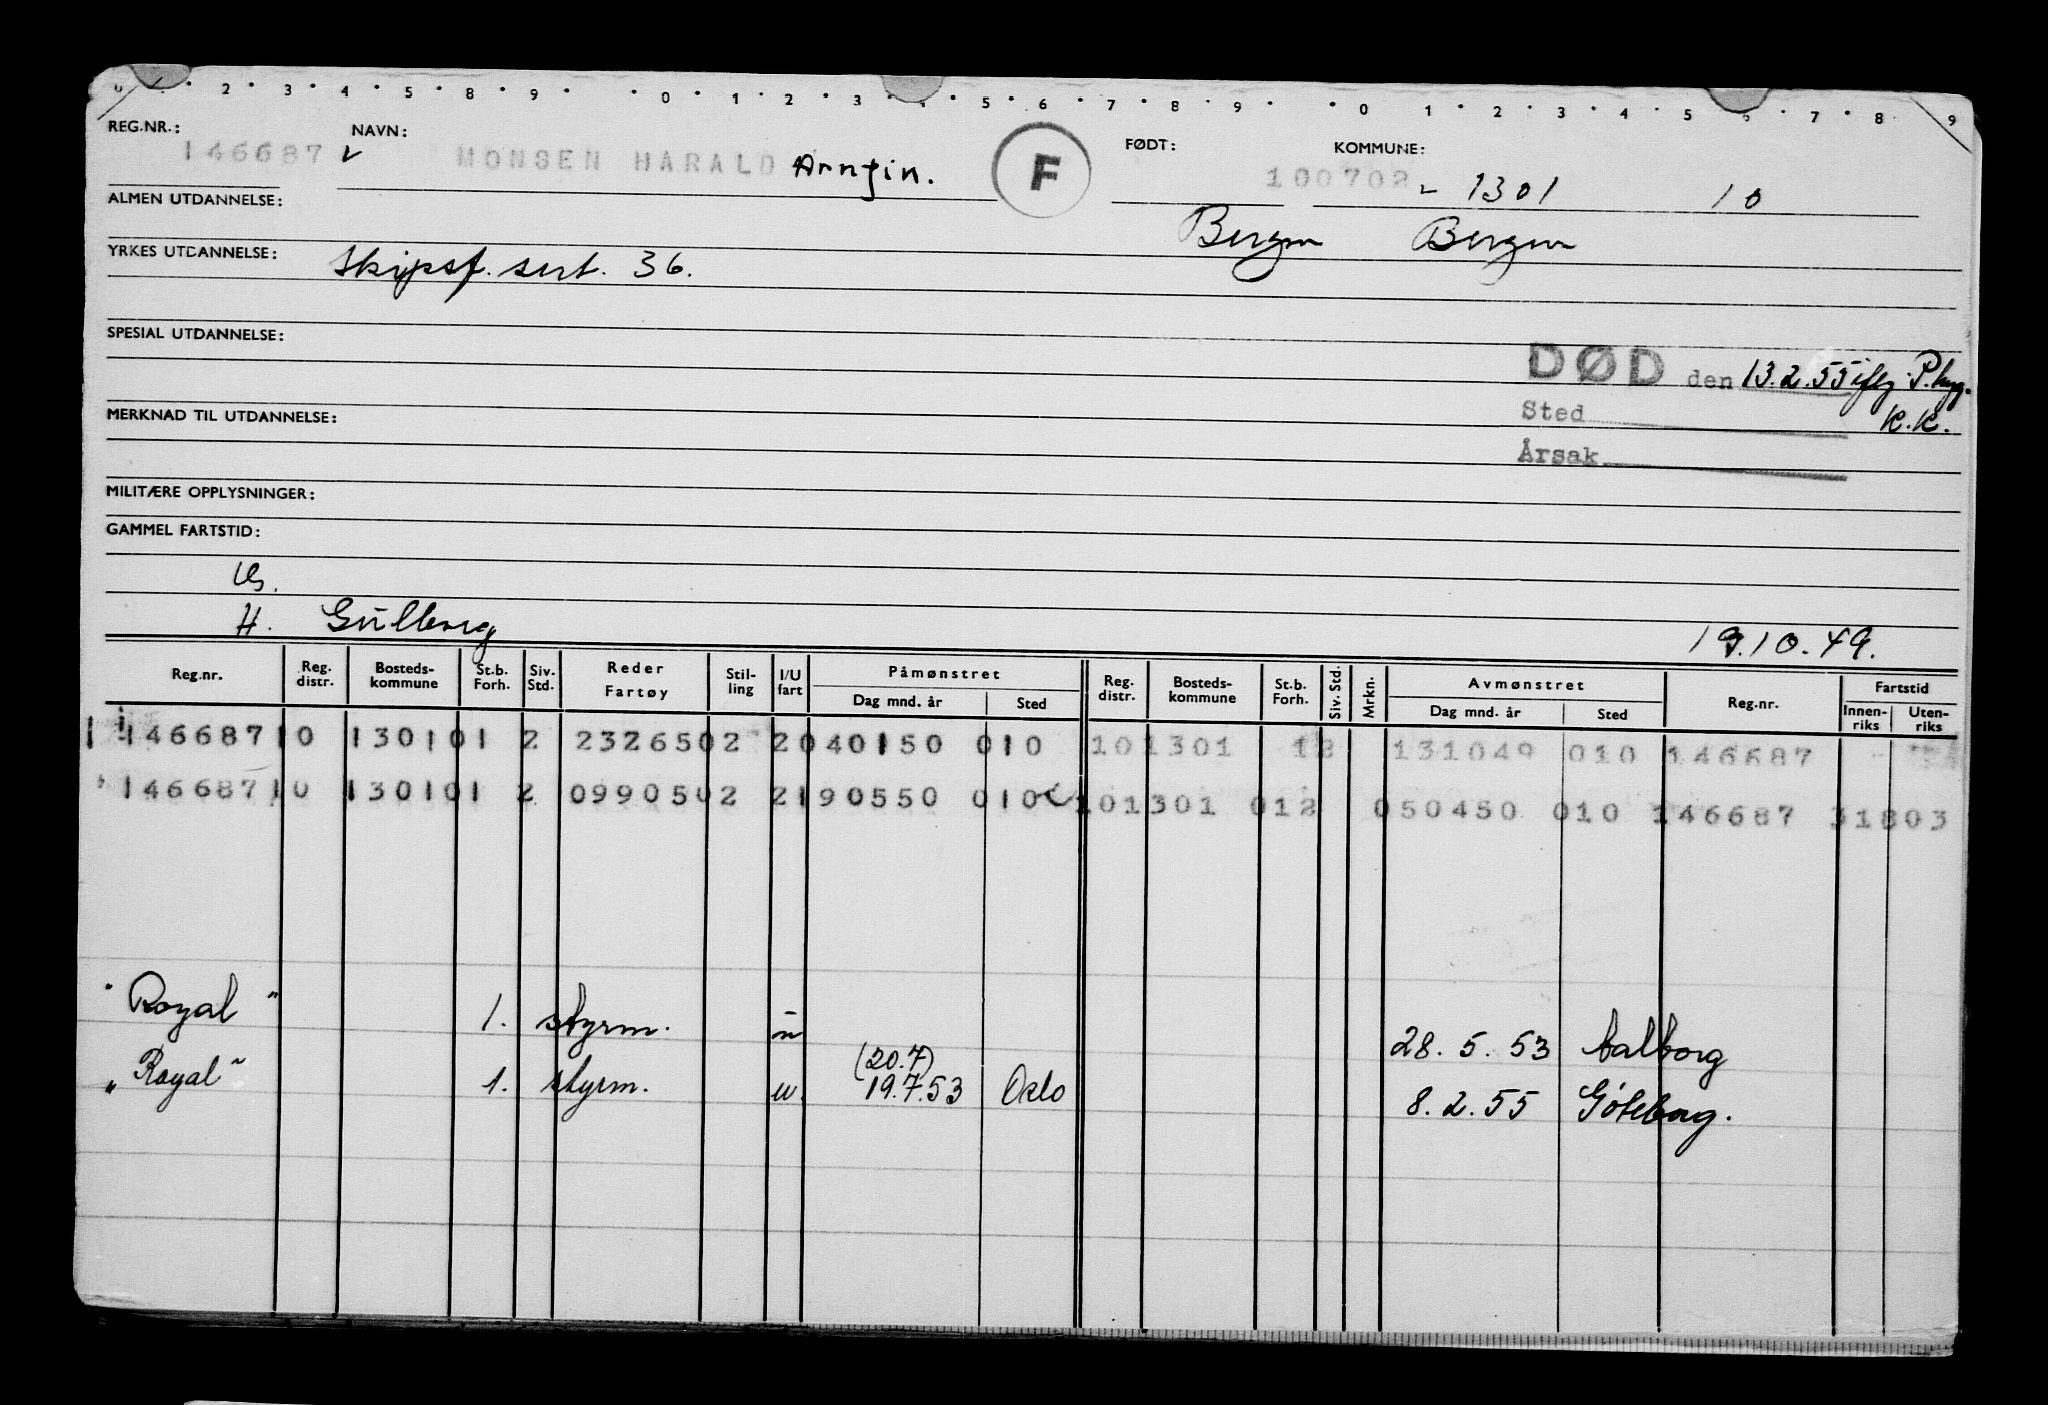 0 · 2 · 3 · 4 · 5 · 8 · 9 · · 0 · 1 · 2 · 3 · 4 · 5 · 6 · 7 · 8 · 9 · · 0 · 1 · 2 · 3 · 4 · 5 · 6 · 7 · 8 · 9
REG.NR.: NAVN: FØDT: KOMMUNE:
146687 MONSEN HARALD Arngin. F 100702 1301 10
ALMEN UTDANNELSE: Bergen Bergen
YRKES UTDANNELSE: Skipsf. sert. 36.
SPESIAL UTDANNELSE:
DØD den 13.2.55 iflg. P.
MERKNAD TIL UTDANNELSE: Sted K.K.
Årsak
MILITÆRE OPPLYSNINGER:
GAMMEL FARTSTID:
H. Gullberg 13.10.49.
Reg.nr. Reg. distr. Bosteds-kommune St.b. Forh. Siv. Std. Reder Fartøy Stil-ling I/U fart Påmønstret Dag mnd. år Sted Reg. distr. Bosteds-kommune St.b. Forh. Siv. Std. Mrkn. Avmønstret Dag mnd. år Sted Reg.nr. Fartstid Innen-riks Uten-riks
146687 10 1301 01 2 232650 2 2 040150 010 10 1301 12 131049 010 146687
146687 10 1301 01 2 099050 2 2 190550 010 10 1301 012 050450 010 146687 31803
"Royal" 1. styrm. u 28. 5. 53 Aalborg
(20.7)
"Royal" 1. styrm. u. 19.7.53 Oslo 8. 2. 55 Göteborg.